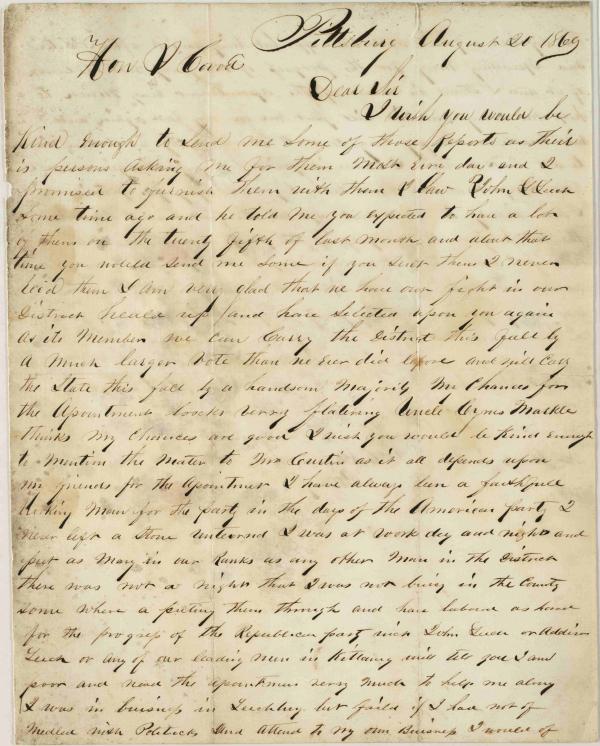 Pittsburg August 20 1860
Hon J Covode
Dear Sir
I wish you would be
Kind Enough to Send me Some of those Reports as their
is persons Asking me for them Most Evry day and I
promised to furnish them with them I Saw John Leech
Some time ago and he told me you Expected to have a lot
of them on the twenty fifth of last Month and about that
time you would Send me Some if you Sent them I never
them I Am very glad that we have our fight in our
District heald up and have Selected upon you again
as its Member we can Carry the District this fall by
a Much larger Vote than we Ever did before and will Cary
the State this fall by a handsom Majority My Chances for
the Apointment loocks verry flatering Uncle Cyrus Mackle
thinks My Chances are good I wish you would be Kind Enough
to Mention the Mater to Mr Curtin as it all depends upon
my friends for the Apointment I have always been a faithfull
working Man for the party in the days of the American party I
never left a Stone unturned I was at work day and night and
put as Many in our Ranks as any other Man in the District
there was not a night that I was not buisy in the County
Some where a puting them through and have laboured as hard
for the progress of the Republican party John Leech or Addison
Leech or Any of our leading Men in Kittaning will tell you I am
poor and need the apointment verry Much to help me along
I was in buisness in Leechburg but faild if I had not of
Medled with Politicks and Attend to my own Buisness I would of